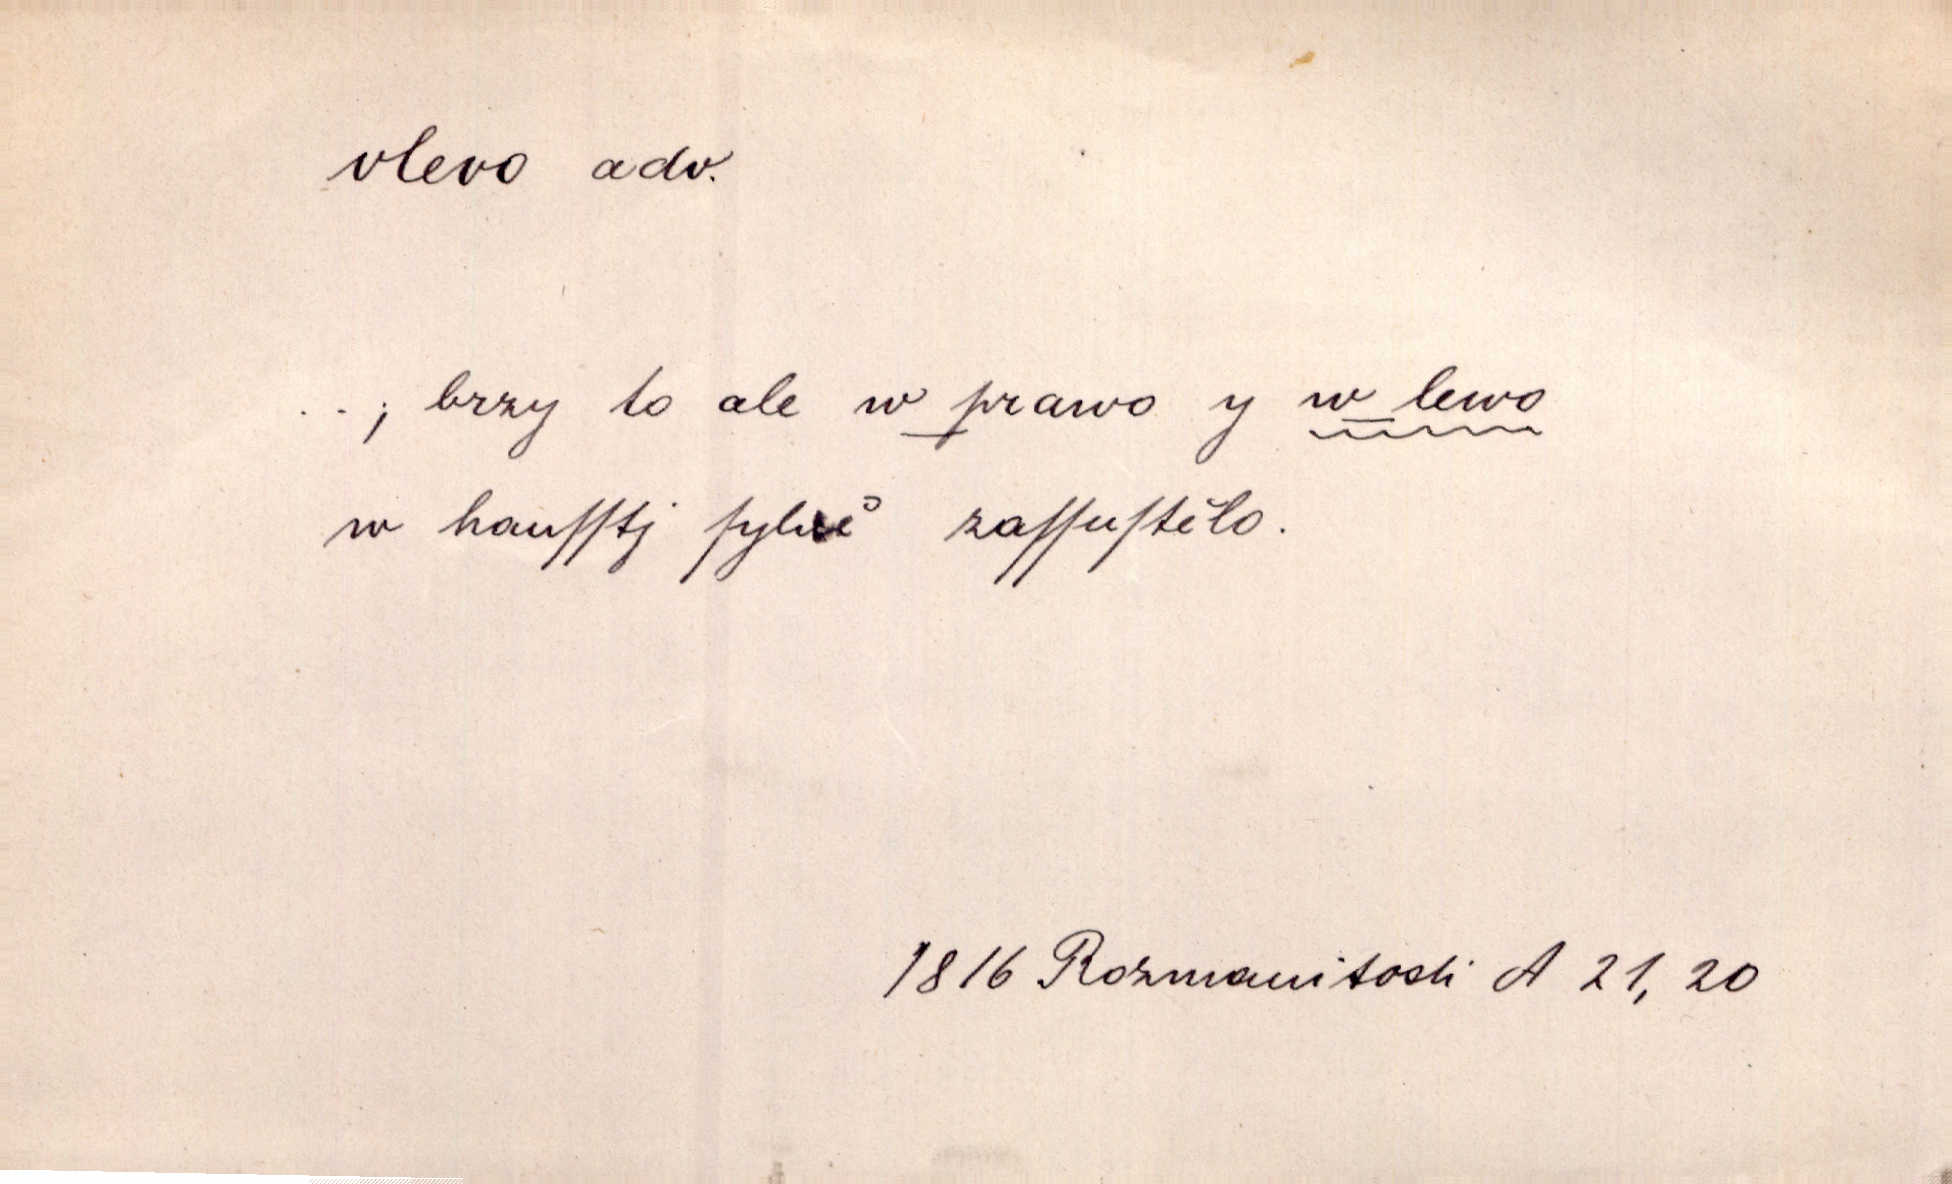 vlevo adv.
..; brzy to ale w prawo y w lewo
w hauſſtj ſylně zaſſuſtělo.
1816 Rozmanitosti A 21, 20